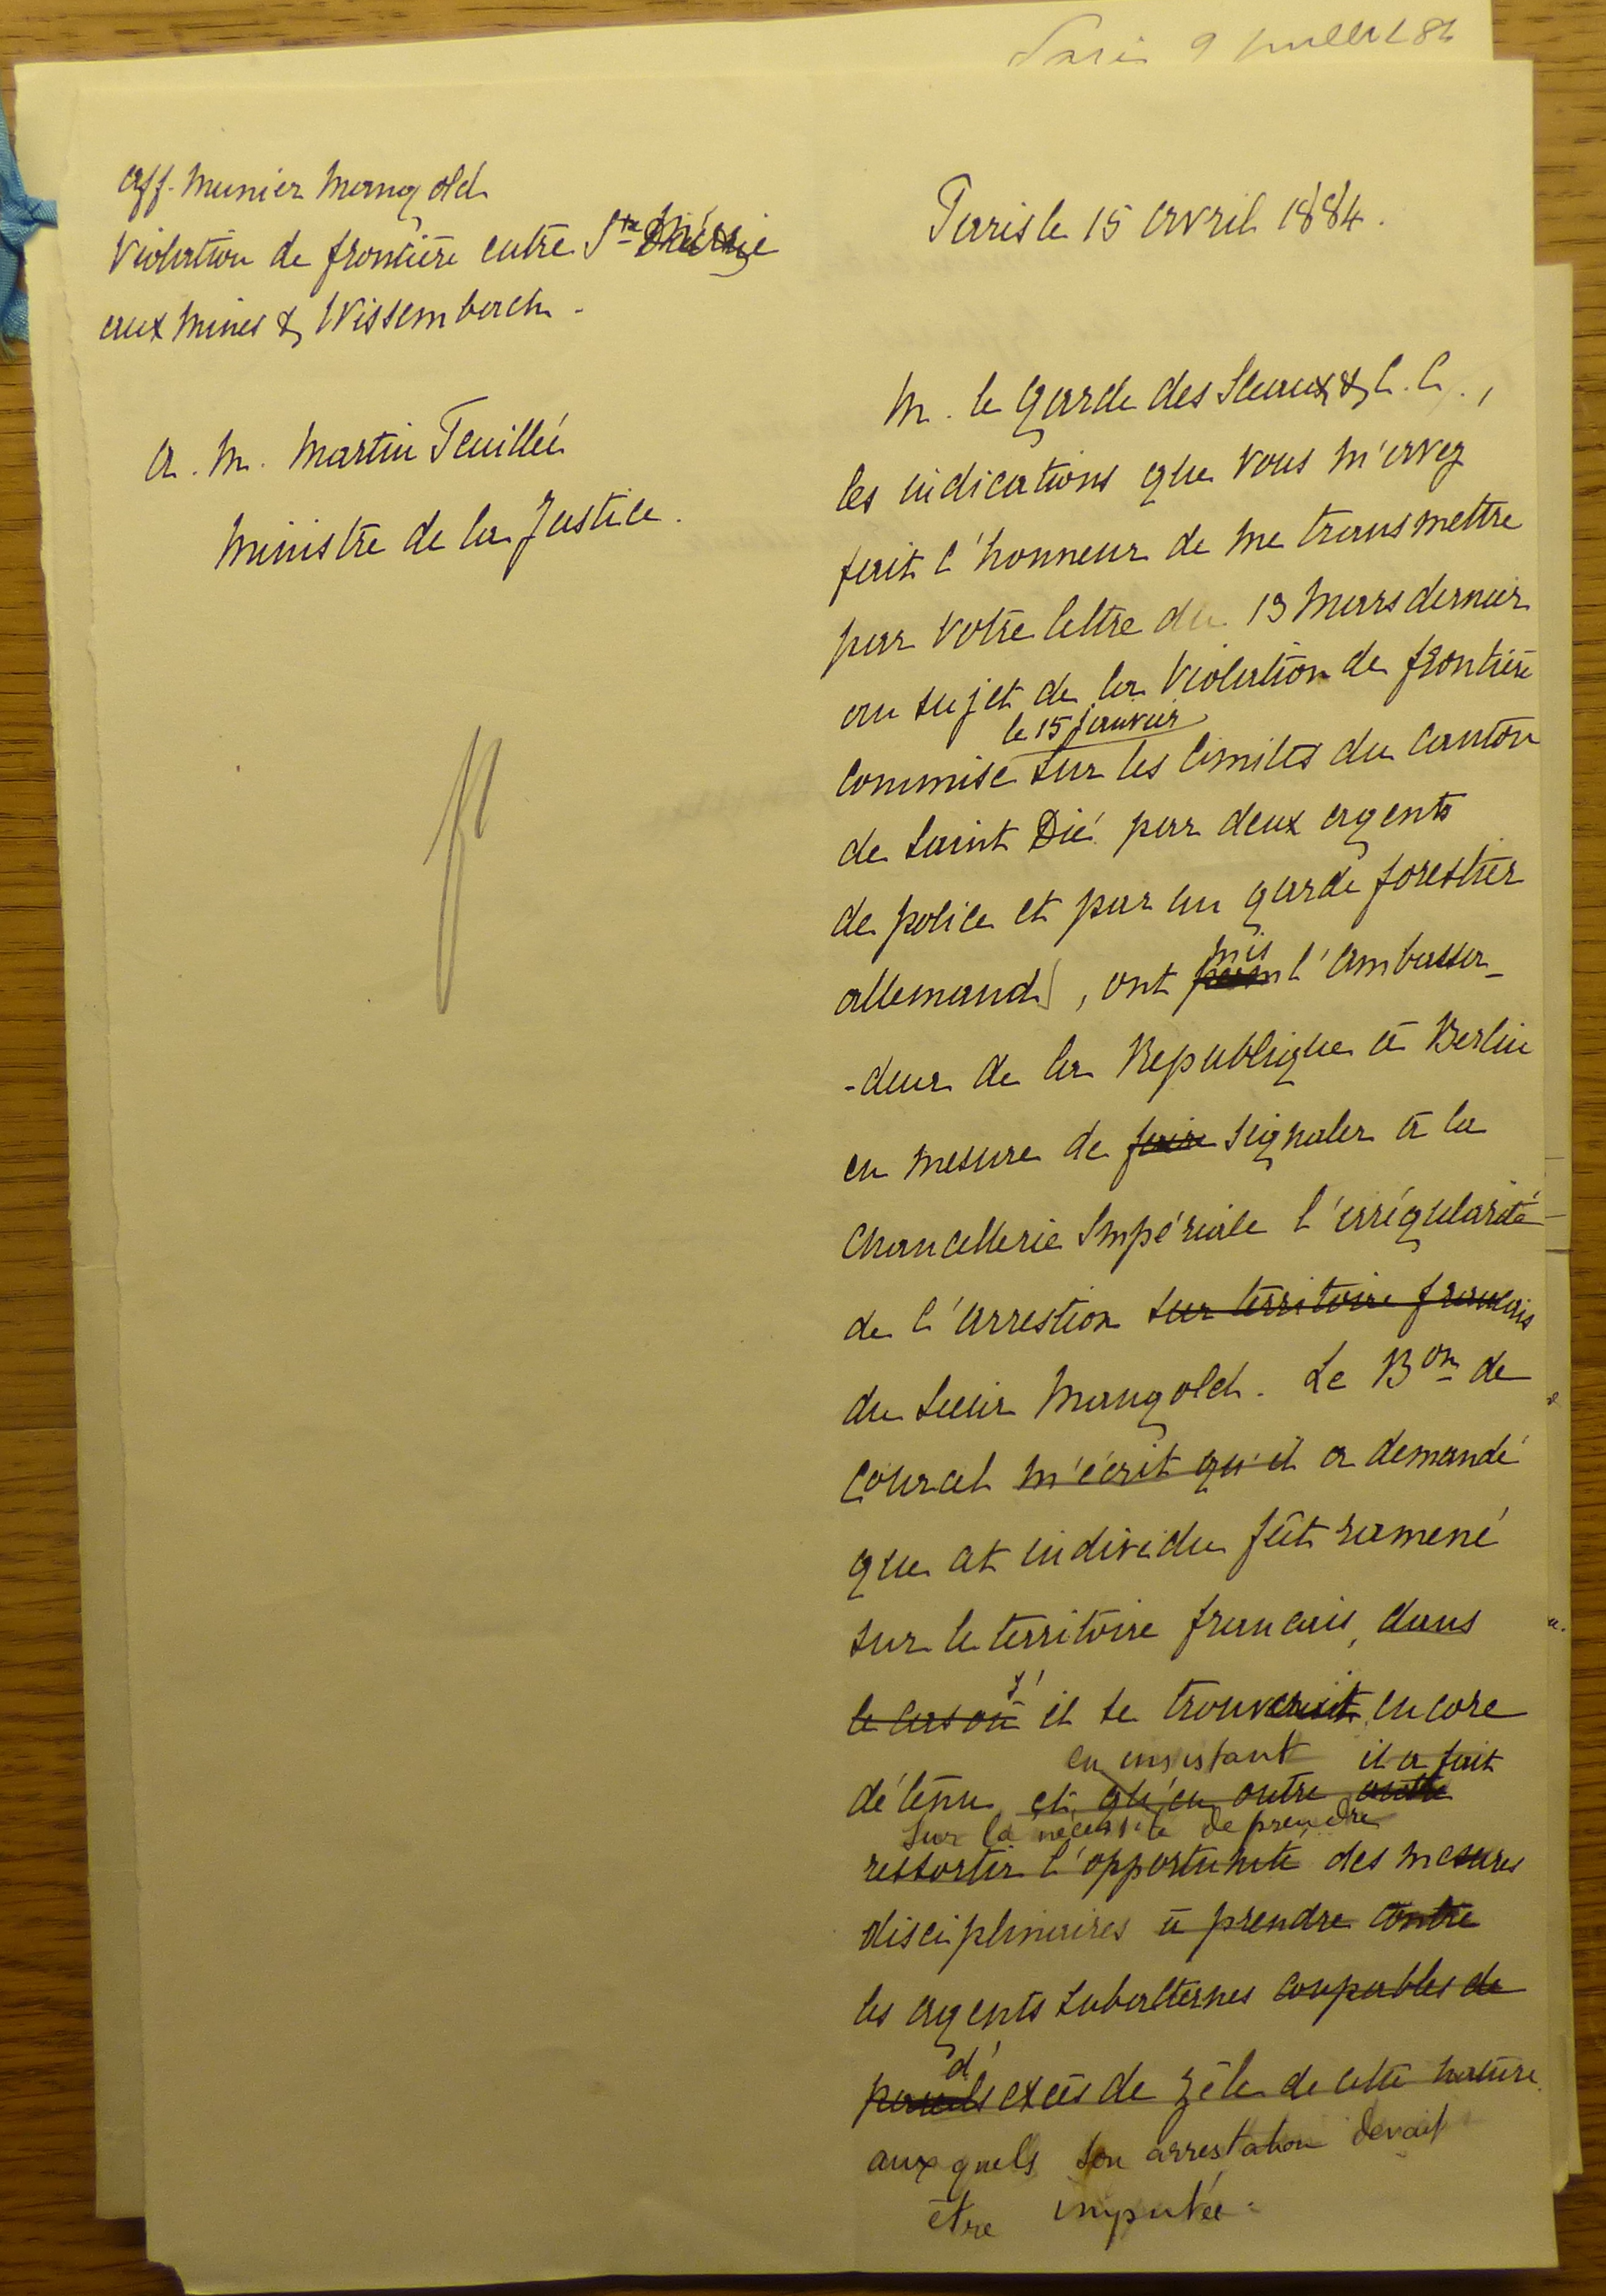 Paris 9 juillet 84
Aff. Munier Mangold
Violation de frontière entre Ste Marie
aux Mines & Wissembach.
A. M. Martin Feuillée
Ministre de la Justice.
Paris le 15 avril 1884.
M. le Garde des Sceaux & C. C.,
les indications que vous m'avez
fait l'honneur de me transmettre
par votre lettre du 13 Mars dernier
au sujet de la violation de frontière
le 15 Janvier
commise sur les limites du Canton
de Saint Dié par deux agents
de police et par un garde forestier
allemand, ont
mis
l'ambassa-
-deur de la République à Berlin
en mesure de faire signaler à la
Chancellerie Impériale l'irrégularité
de l'arrestion sur territoire francais
du sieur Mangold. Le Bon de
Courcel m'écrit qu'il a demandé
que cet individu fût ramené
sur le territoire francais, dans
s'
le cas où il se trouverait encore
en insistant il a fait
détenu et qu'en outre
sur la nécessité de prendre
ressortir l'opportunité des mesures
disciplinaires à prendre contre
les agents subalternes coupables de
d'
pareils excès de zèle de cette nature
auxquels son arrestation devait
être imputée.